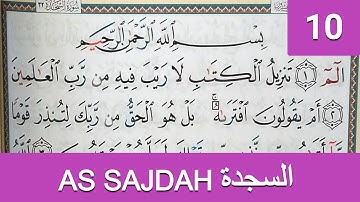 10
بِسْمِ ٱللَّهِ ٱلرَّحْمَٰنِ ٱلرَّحِيمِ
الٓمٓ ١ تَنزِيلُ ٱلْكِتَٰبِ لَا رَيْبَ فِيهِ مِن رَّبِّ ٱلْعَٰلَمِينَ
٢ أَمْ يَقُولُونَ ٱفْتَرَىٰهُ ۚ بَلْ هُوَ ٱلْحَقُّ مِن رَّبِّكَ لِتُنذِرَ قَوْمًا
AS SAJDAH السجدة